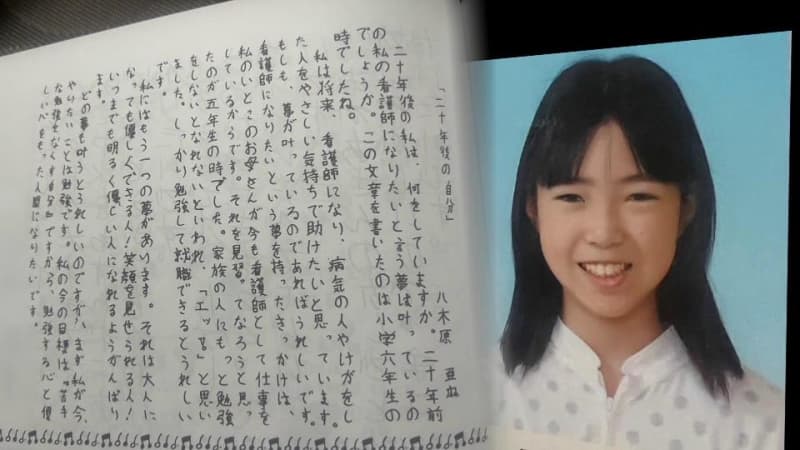 「二十年後の自分」
八木原
二十年後の私は、何をしていますか。二十年前
の私の看護師になりたいと言う夢は叶っているの
でしょうか。この文章を書いたのは小学六年生の
時でしたね。
私は将来、看護師になり、病気の人やけがをし
た人をやさしい気持ちで助けたいと思っています。
もしも、夢が叶っているのであればうれしいです。
看護師になりたいという夢を持ったきっかけは、
私のいとこのお母さんが今も看護師として仕事を
しているからです。それを見習ってなろうと思っ
たのが五年生の時でした。家族の人にもっと勉強
をしないとなれないといわれ、「エッ!!」と思い
ました。しっかり勉強して就職できるとうれしい
です。
私にはもう一つの夢があります。それは大人に
なっても優しくできる人!笑顔を見せられる人!
いつまでも明るく優しい人になれるようがんばり
ます。
どの夢も叶うとうれしいのですが、まず私が今、
やりたいことは勉強です。私の今の目標は“苦手
な勉強をなくす自分”ですから、勉強する心と優
しい心をもった人間になりたいです。